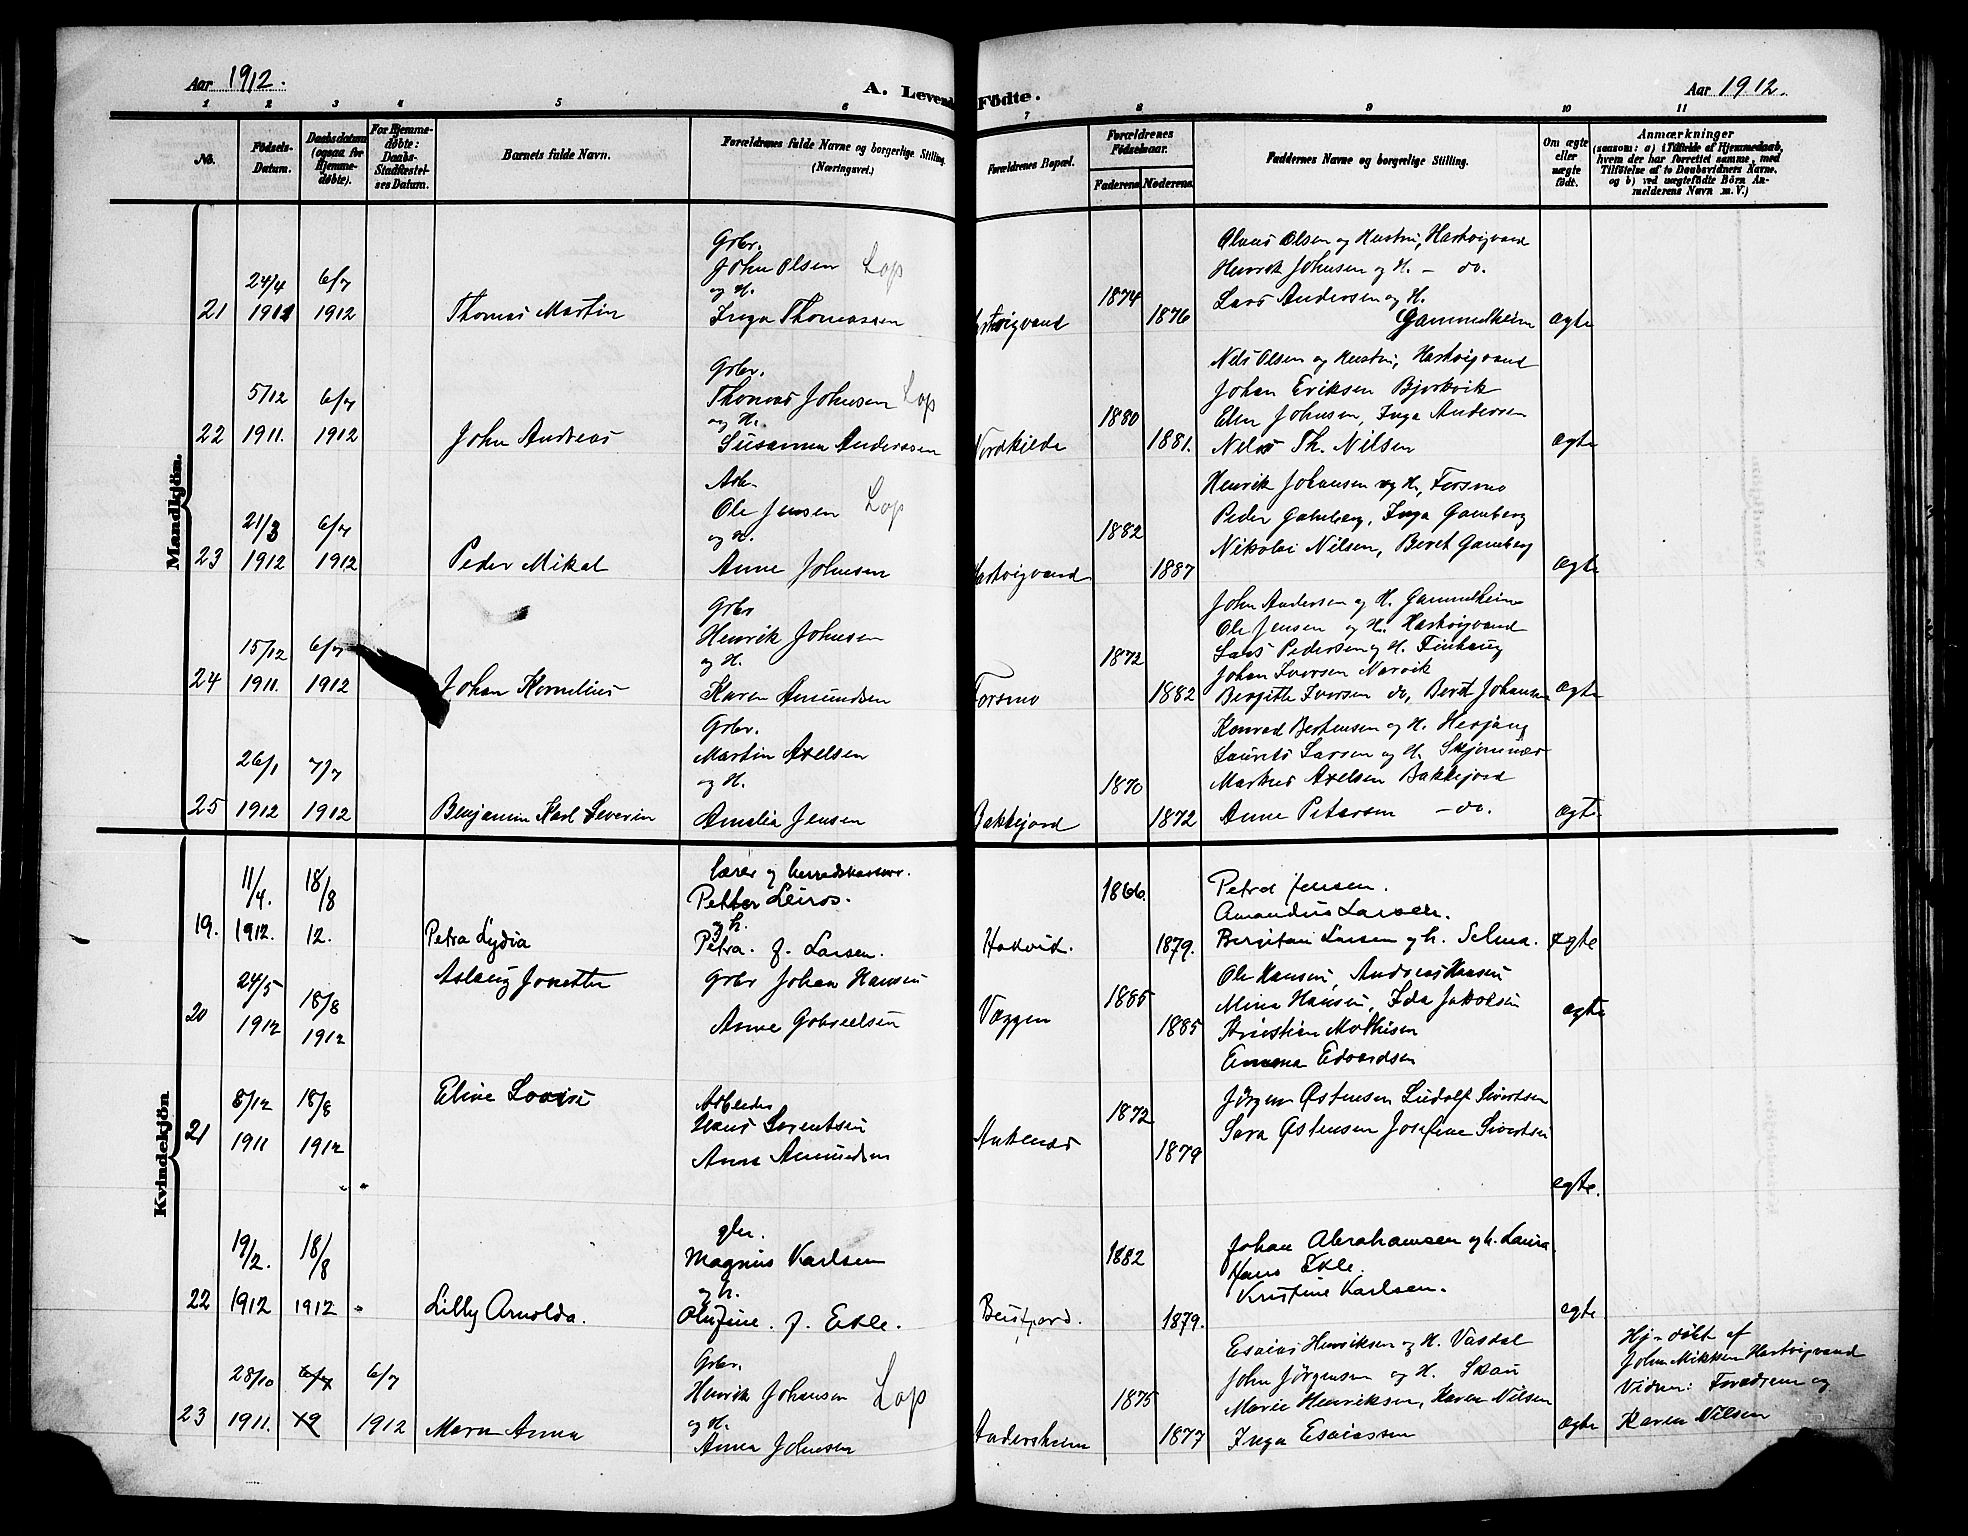 Aar 1912.
A. Levende Födte.
Aar 1912.
1 2 3 4 5 6 7 8 9 10 11
No.
Födsels-Datum.
Daabsdatum (ogsaa for Hjemme-döbte).
For Hjemme-döbte: Daabs-Stadfæstel-ses Datum.
Barnets fulde Navn.
Forældrenes fulde Navne og borgerlige Stilling.
(Næringsvei.)
Forældrenes Bopæl.
Forældrenes Födselsaar.
Faderens. Moderens.
Faddernes Navne og borgerlige Stilling.
Om ægte eller uægte födt.
Anmærkninger
(saasom: a) i Tilfælde af Hjemmedaab,
hvem der har forrettet samme, med
Tilföielse af to Daabsvidners Navne,
og b) ved uægtefödte Börn An-
melderens Navn m. V.)
Mandkjön.
21
24/4
1912
6/7
1912
Thomas Martin
Grbr.
John Olsen
og H.
Inga Thomassen
Lap
1874
1876
Olaus Olsen og Hustru, Hartvigvand
Henrik Johnsen og H. – do.
Lars Andersen og H.
Gammelheim
ægte
22
5/12
1911.
6/7
1912
John Andreas
Grbr.
Thomas Johnsen
og H.
Susanna Anderssen
Lap
1880
1881.
Nels Olsen og Hustru, Hartvigvand
Johan Eriksen Bjerkvik
Elen Johnsen, Inga Andersen
Nels Th. Nilsen
ægte
23
21/3
1912
6/7
1912
Peder Mikal
Arb.
Ole Jensen
og H.
Anne Johnsen
Lap
Hartvigvand
1882
1887
Henrik Johansen og H., Forsmo
Peder Gamberg, Inga Gamberg
Nikolai Nilsen, Beret Gamberg
ægte
24
15/12
1911.
6/7
1912
Johan Kornelius
Grbr
Henrik Johnsen
og H.
Karen Amundsen
Forsmo
1872
1882
John Andersen og H. Gammelheim
Ole Jensen og H. Hartvigvand
Lars Pedersen og H.
Johan Iversen Narvik
Bergitte Iversen do, Beret Johansen
ægte
25
26/1
1912
7/7
1912
Benjamin Karl Severin
Grbr.
Martin Axelsen
og H.
Amalia Jensen
Bakkejord
1870
1872
Konrad Berntensen og H. Herjang
Laurits Larsen og H. Skjomnes
Markus Axelsen Bakkejord
Anne Petersen – do.
ægte
Kvindekjön
19.
11/4.
1912.
18/8
12.
Petra Lydia
lærer og herredskasserer.
Petter Leiros.
og h.
Petra. f. Larsen.
1866.
1879.
Petra Jensen.
Amandus Larsen.
Bergitan Larsen og h. Selma.
ægte
20
24/5
1912
18/8
1912
Aslaug Jonette
Grbr Johan Hansen
Anne Gabrielsen
Væggen
1885
1885
Ole Hansen, Andreas Hansen
Mina Hansen, Ida Jakobsen
Kristian Mathisen
Emma Edvardsen
ægte
21
8/12
1911
18/8
1912
Eline Lovise
Arbeider
Hans Sørentsen
Anne Amundsen
Ankenes
1872
1879
Jørgen Østensen Ludolf Sivertsen
Sara Østensen Josefine Sivertsen
ægte.
22
19/2.
1912
18/8
1912
Lilly Arnolda.
gbr.
Magnus Karlsen
og h.
Olufine. f. Exle.
Beisfjord.
1882
1879.
Johan Abrahamsen og h. Laura.
Hans Exle.
Kristine Karlsen.
ægte.
23
28/10
1911.
6/7
6/7
1912
Maren Anna
Grbr.
Henrik Johansen
og H.
Anna Johnsen
Lap
Andersheim
1875
1877
Esaias Henriksen og H. Vasdal
John Jørgensen og H. Skau
Marie Henriksen, Karen Nilsen
Inga Esaiassen
ægte
Hj-døbt af
John Mikkelsen Hartvigvand
Vidner: Forældrene og
Karen Nilsen